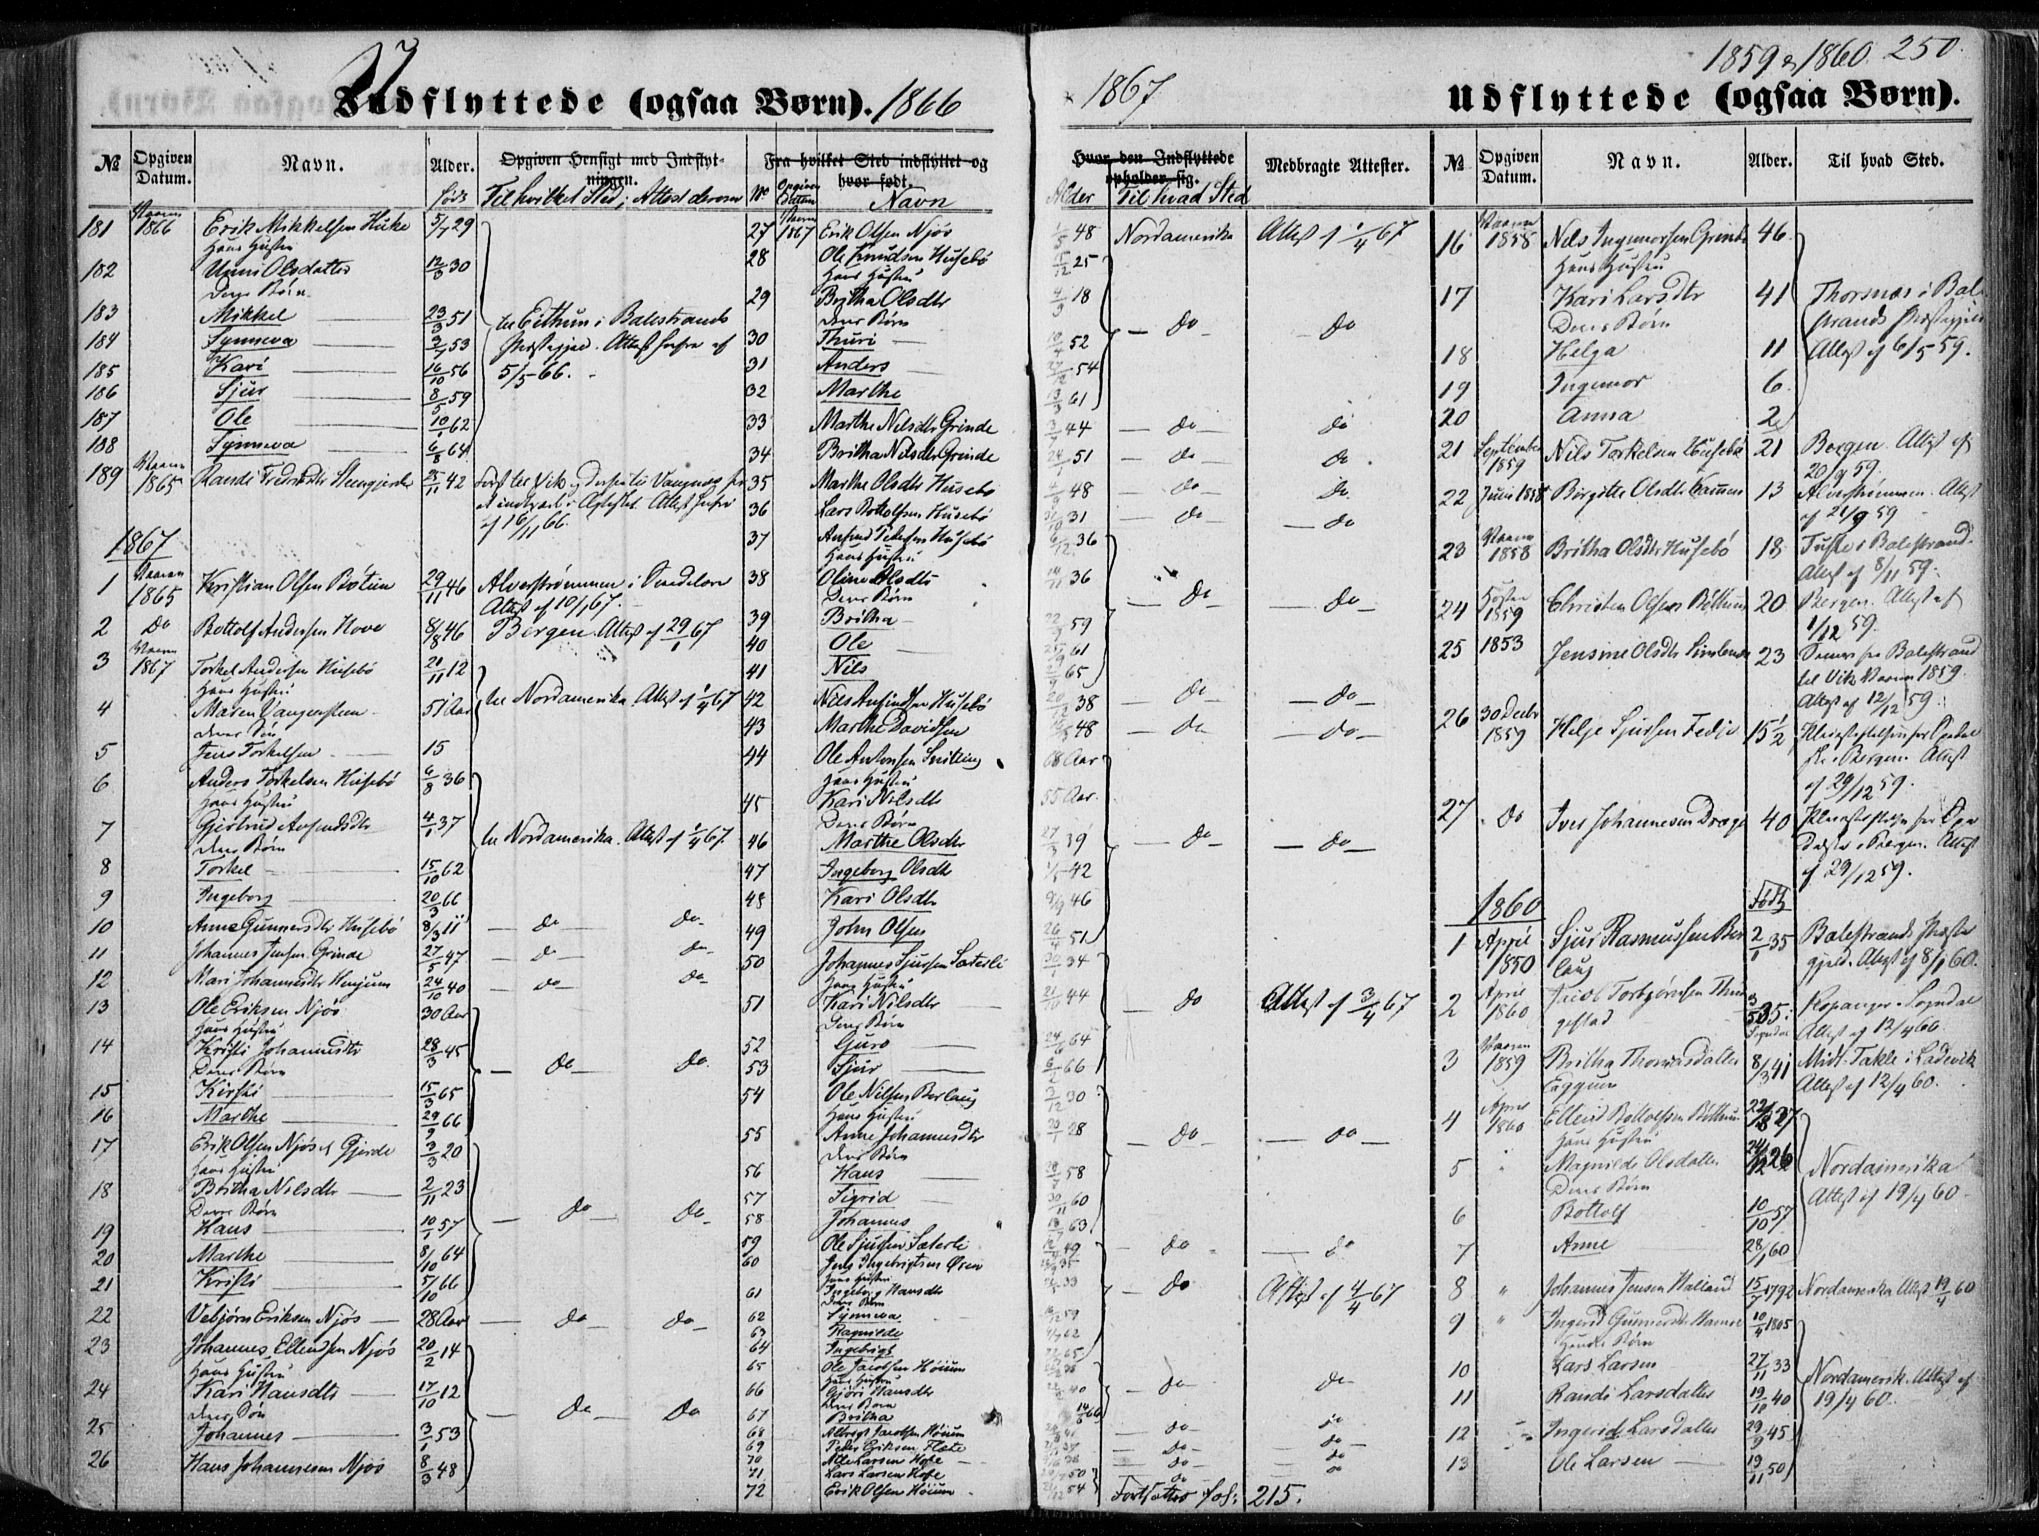 Udflyttede (ogsaa Børn). 1866
№
Opgiven Datum.
Navn.
Alder.
født
Opgiven Hensigt med Indflytningen.
Til hvilket Sted; Attest derom
Fra hvilket Sted indflyttet og hvor født.
No
Opgiven Datum
Navn
181 Vaaren 1866 Erik Mikkelsen Huke 5/7 29
Hans Hustru
182 Unni Olsdatter 12/3 30
Deres Børn
183 Mikkel 23/3 51 til Eithun i Balestrands
184 Synneva 3/7 53 Præstegjeld. Attest herfra af
185 Kari 16/10 56 5/5 66.
186 Sjur 8/5 59
187 Ole 10/1 62
188 Synneva 6/8 64
189 Vaaren 1865 Randi 25/11 42
af 16/11 66.
1867
1 Vaaren 1865 Kristian Olsen Bøtun 29/11 46 Alverstrømmen i
Attest af 10/1 67.
2 Do Bottolf Andersen Hove 8/8 46 Bergen. Attest af 29/1 67
3 Vaaren 1867 Torkel Andersen Husebø 21/11 12
Hans Hustru
4 Maren Vangensteen 51 Aar til Nordamerika Attest af 1/4 67
deres Søn
5 Jens Torkelsen 15
6 Anders Torkelsen Husebø 6/8 36
Hans Hustru
7 Gjertrud Anfindsdtr 4/1 37 til Nordamerika. Attest af 1/4 67.
deres Børn
8 Torkel 15/10 62
9 Ingeborg 20/3 66
10 Anna Gunnersdtr Husebø 8/3 11 do do
11 Johannes Jensen Grinde 27/5 47 do do
12 Mari Johannesdtr Henjum 24/10 40 do do
13 Ole Eriksen Njøs 30 Aar
Hans Hustru
14 Kristi Johannesdtr 28/3 45 do do
Deres Børn
15 Kirsti 15/3 65
16 Marthe 29/9 66
17 Erik Olsen Njøs Gjerde 3/3 20
Hans Hustru
18 Britha Nilsdtr 2/11 23
Deres Børn do do
19 Hans 10/1 57
20 Marthe 8/10 64
21 Kristi 5/10 66
22 Vebjørn Eriksen Njøs 28 Aar do do
23 Johannes Ellendsen Njøs 20/2 14
Hans Hustru
24 Kari Hansdtr 17/10 12
deres Søn do do
25 Johannes 3/1 53
26 Hans Johannesen Njøs 8/3 48
27 Vaaren 1867 Erik Olsen Njøs
28 Ole Knudsen Husebø
Hans Hustru
29 Britha Olsdtr
Deres Børn
30 Thuri
31 Anders
32 Marthe
33 Marthe Nilsdtr Grinde
34 Britha Nilsdtr Grinde
35 Marthe Olsdtr Husebø
36 Lars Bottolfsen Husebø
37 Anfind Pedersen Husebø
Hans Hustru
38 Oline Olsdtr
Deres Børn
39 Britha
40 Ole
41 Nils
42 Nils Anfindsen Husebø
43 Marthe Davidsen
44 Ole Antonsen
Hans Hustru
45 Kari Nilsdtr
Deres Børn
46 Marthe Olsdtr
47 Ingeborg Olsdtr
48 Kari Olsdtr
49 John Olsen
50 Johannes Sjursen Sæterli
Hans Hustru
51 Kari Nilsdtr
Deres Børn
52 Guro
53 Sjur
54 Ole Nilsen Berlaug
Hans Hustru
55 Anne Johannesdtr
deres Børn
56 Hans
57 Sigrid
58 Johannes
59 Ole Sjursen Sæterli
60 Jens Ingebrigtsen Øren
Hans Hustru
61 Ingeborg Hansdtr
Deres Børn
62 Synneva
63 Ragnilde
64 Ingebrigt
65 Ole Jacobsen Høium
Hans Hustru
66 Gjøri Hansdtr
Deres Børn
67 Britha
68 Albregt Jacobsen Høium
69 Peder Eriksen Flæte
70 Larsen Hofe
71 Lars Larsen Hofe
72 Erik Olsen Høium
1867
1859 & 1860. 250.
Udflyttede (ogsaa Børn).
Hvor den Indflyttede opholder sig.
Alder Til hvad Sted
Medbragte Attester.
№
Opgiven Datum.
Navn.
Alder.
Til hvad Sted.
48 Nordamerika Attest af 1/4 67
15/12 25
4/9 18
do do
10/4 52
27/12 54
13/3 61
3/7 44 do do
51 do do
48 do do
31 do do
6/12 36
14/11 36
do do
59
61
65
38 do do
48 do do
68 Aar
55 Aar.
27/3 39 do do
42
46
26/4 51
34
21/10 44 do Attest af 3/4 67
24/6 64
66
30
20/1 28 do do
58
30/11 60
63
49 do do
35
33 do Attest af 4/4 67
59
62
65
40 do do
66
do do
do do
do do
50 do
54 Fortsættes fol: 215.
16 Vaaren 1858 Nils Ingemorsen Grinde 46
Hans Hustru
17 Kari Larsdtr 41 Thormes i Bal
Deres Børn strands Præstegjeld
18 Helga 11 Attest af 6/5 59.
19 Ingemor 6
20 Anna 2
21 September 1859 Nils Torkelsen Husebø 21 Bergen. Attest af
20/9 59.
22 Juni 1858 Birgitte Olsdtr 13 Alverstrømmen. Attest
af 21/9 59
23 Vaaren 1858 Britha Olsdtr Husebø 18 i Balestrand.
Attest af 8/11 59.
24 Høsten 1859 Christen Olsen Bøthun 20 Bergen. Attest af
1/12 59.
25 1853 Jensine Olsdtr 23 fra Balestrand
til Vik Vaaren 1859.
Attest af 12/12 59.
26 30 Decbr 1859 Helje Sjursen Fedje 15½
i Bergen. Attest
af 29/12 59.
27 Do Iver Johannesen Drage 40
i Bergen. Attest
af 29/12 59.
1860
Født
1 April 1850 Sjur Rasmussen Ber 2/1 35 Balestrands Præste
laug gjeld. Attest af 8/1 60.
2 April 1860 Jacob Torbjørnsen Thun 35. Kopanger i Sogndal
gestad Attest af 12/4 60.
3 Vaaren 1859 Britha Thomasdatter 8/3 41 Midt Takle i Ladevik
Eggum Attest af 12/4 60.
4 April 1860 Ellend Bottolfsen Bøthun 27
Hans Hustru
5 " Magnilde Olsdatter 26 Nordamerika
Deres Børn Attest af 19/4 60.
6 Bottolf 10/10 57
7 Anne 28/1 60
8 " Johannes Jensen Halland 15/7 1792 Nordamerika Attest 19/4 60
9 " Ingerid Gunnersdtr Hamre 10/4 1805
Hendes Børn
10 Lars Larsen 27/11 33 Nordamerik. Attest af
11 Randi Larsdatter 19/10 40 19/4 60.
12 Ingerid Larsdatter 29/9 45
13 Ole Larsen 19/11 50